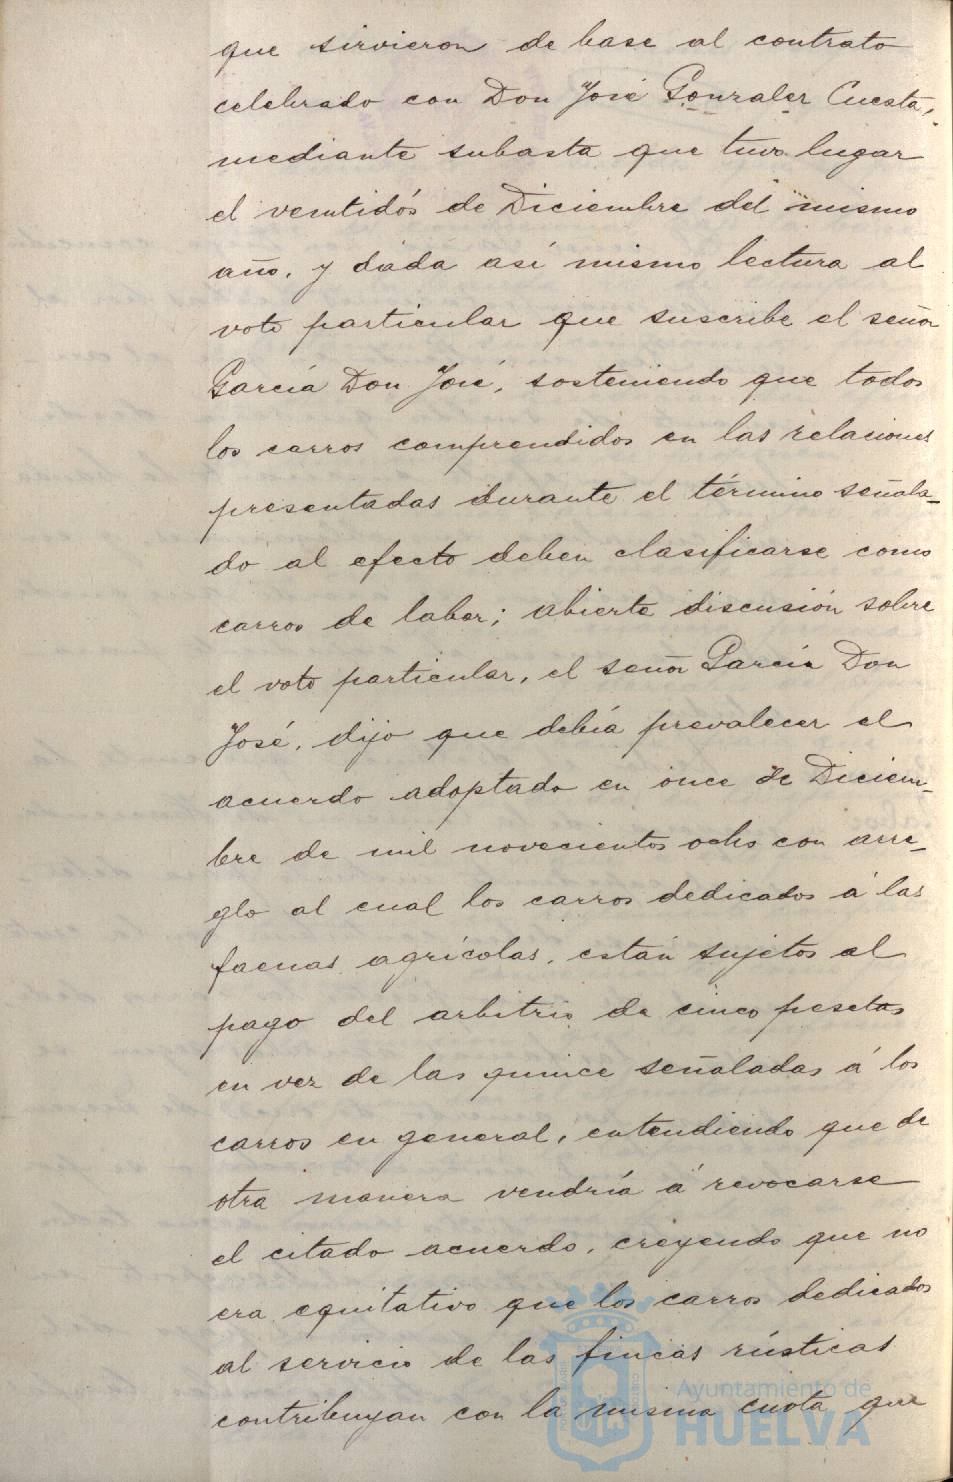 que sirvieron de base al contrato
celebrado con Don José Gonzalez Cuesta,
mediante subasta que tuvo lugar
el ventidós de Diciembre del mismo
año, y dada así mismo lectura al
voto particular que suscribe el señor
García Don José, sosteniendo que todos
los carros comprendidos en las relaciones
presentadas durante el término señala_
do al efecto deben clasificarse como
carros de labor; abierta discusión sobre
el voto particular, el señor García Don
José, dijo que debía prevalecer el
acuerdo adoptado en once de Diciem_
bre de mil novecientos ocho con arre_
glo al cual los carros dedicados á las
faenas agrícolas, están sujetos al
pago del arbitrio de cinco pesetas
en vez de las quince señaladas á los
carros en general, entendiendo que de
otra manera vendría á revocarse
el citado acuerdo, creyendo que no
era equitativo que los carros dedicados
al servicio de las fincas rústicas
contribuyan con la misma cuota que
Ayuntamiento de
HUELVA